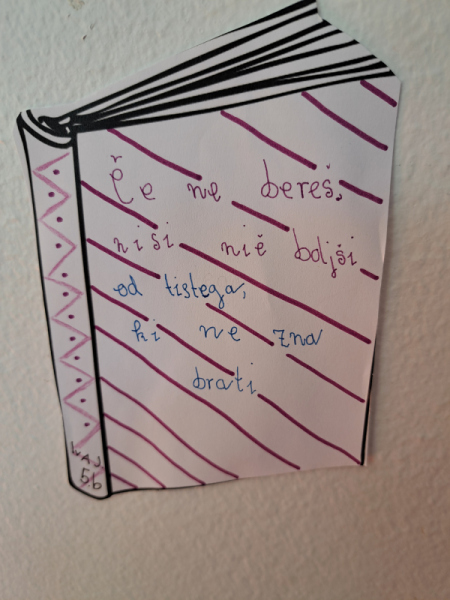 Če ne bereš,
nisi nič boljši
od tistega,
ki ne zna
brati
5.b